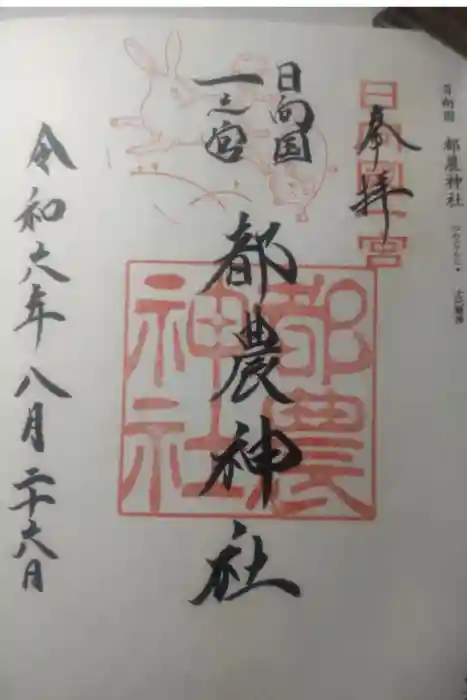 日向国 都農神社
奉拝
日向国一宮
日向国
一之宮
都農神社
都農
神社
令和六年八月二十六日